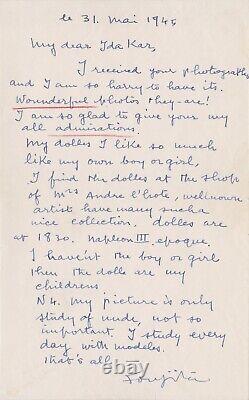 le 31. Mai 1945
My dear Ida Kar,
I received your photographs
and I am so harry to have its.
Wounderful photos they are!
I am so glad to give your my
all admirations.
My dolles I like so much
like my own boy or girl,
I find the dolles at the shop
of Mrs Andre l'hote, wellnown
artist have many sucha
nice collection. dolles are
at 1830. napleon III, epoque.
I haven't the boy or girl
then the dolls are my
childrens
N4. My picture is only
study of nude, not so
important. I study every
day with modeles.
that's all.
Foujita